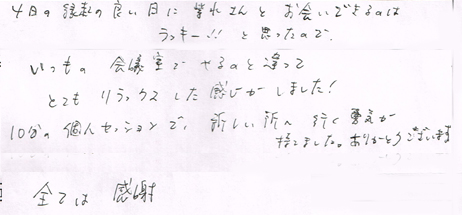 4日の縁起の良い日に 紫れさんと お会いできるのは
ラッキー!! と思ったので.
いつもの 会議室でやるのと違って
とても リラックスした感じがしました!
10分の個人セッションで, 新しい所へ 行く 勇気が
持てました。ありがとうございます
全ては 感謝